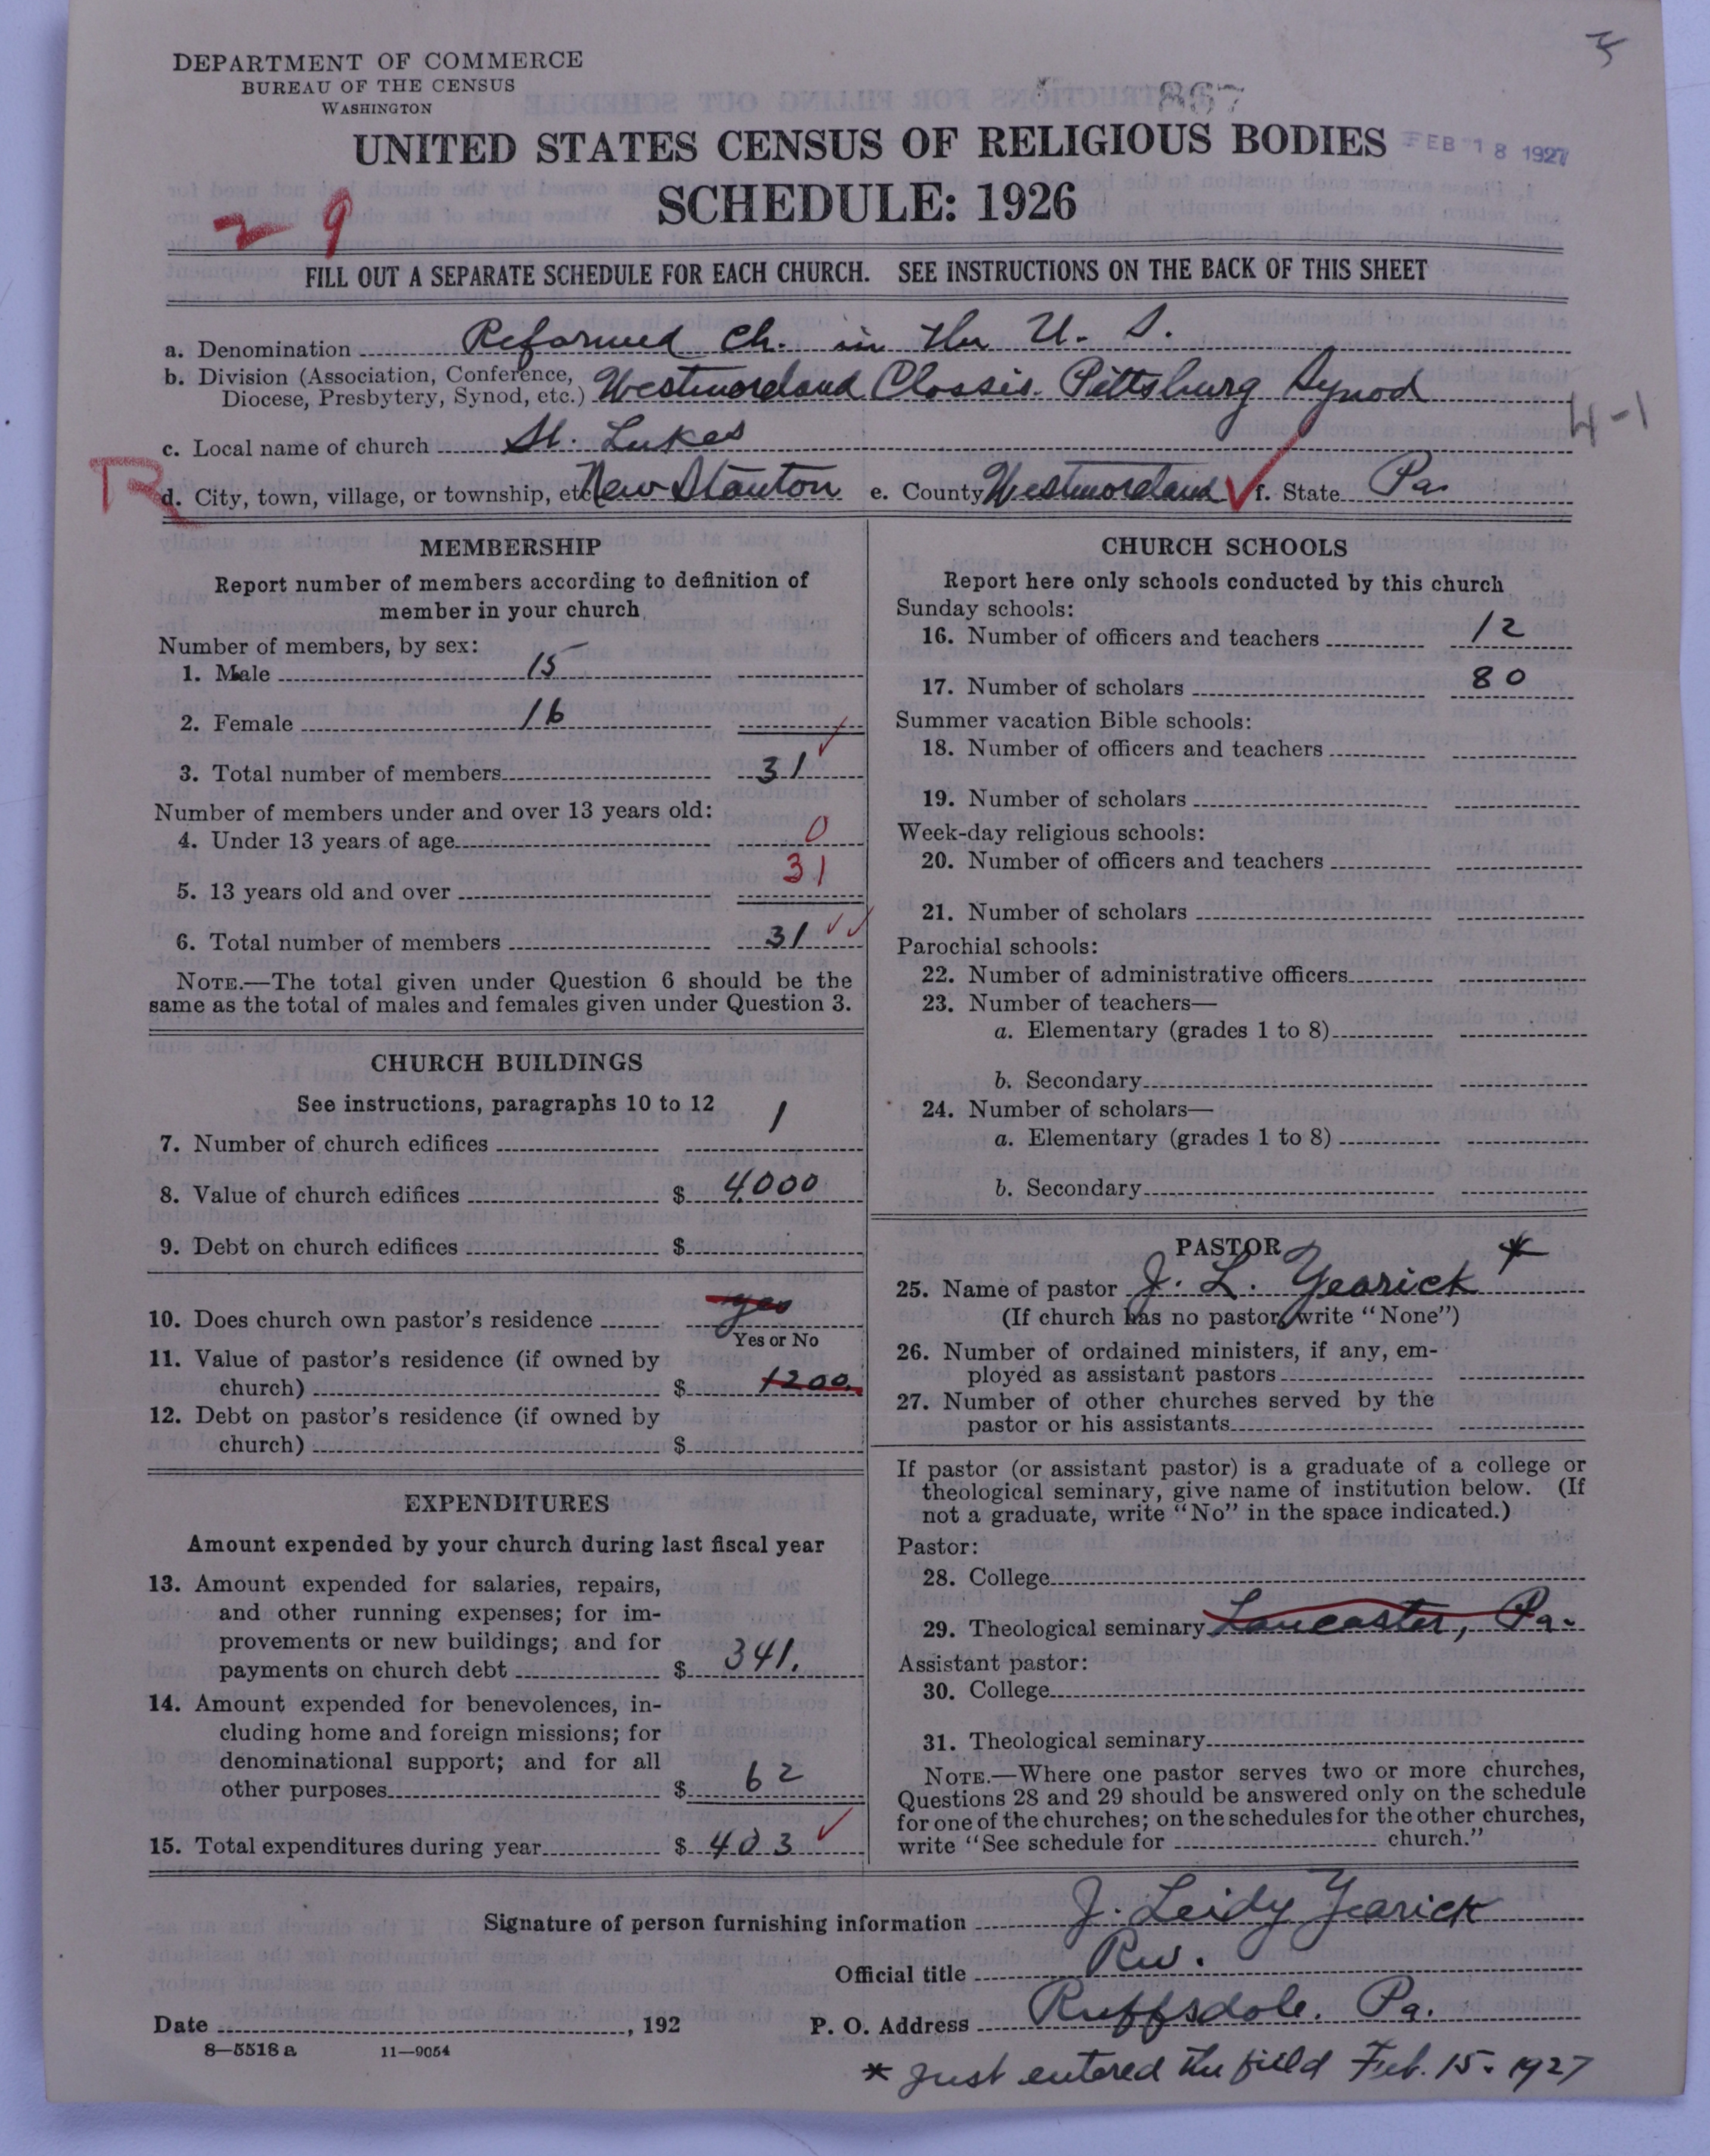 3
DEPARTMENT OF COMMERCE
BUREAU OF THE CENSUS
WASHINGTON
867
UNITED STATES CENSUS OF RELIGIOUS BODIES
FEB 18 1927
SCHEDULE: 1926
29
FILL OUT A SEPARATE SCHEDULE FOR EACH CHURCH. SEE INSTRUCTIONS ON THE BACK OF THIS SHEET
a. Denomination Reformed Ch. in the U. S.
b. Division (Association, Conference, Diocese, Presbytery, Synod, etc.) Westmoreland Classis. Pittsburg Synod
4-1
c. Local name of church St. Lukes
R
d. City, town, village, or township, etc. New Stanton e. County Westmoreland ✓ f. State Pa.
MEMBERSHIP
Report number of members according to definition of
member in your church
Number of members, by sex:
1. Male 15
2. Female 16
3. Total number of members 31 ✓
Number of members under and over 13 years old:
4. Under 13 years of age 0
5. 13 years old and over 31
6. Total number of members 31 ✓✓
NOTE.—The total given under Question 6 should be the
same as the total of males and females given under Question 3.
CHURCH BUILDINGS
See instructions, paragraphs 10 to 12
7. Number of church edifices 1
8. Value of church edifices $ 4000
9. Debt on church edifices $
10. Does church own pastor's residence yes
Yes or No
11. Value of pastor's residence (if owned by
church) $ 1200.
12. Debt on pastor's residence (if owned by
church) $
EXPENDITURES
Amount expended by your church during last fiscal year
13. Amount expended for salaries, repairs,
and other running expenses; for im-
provements or new buildings; and for
payments on church debt $ 341.
14. Amount expended for benevolences, in-
cluding home and foreign missions; for
denominational support; and for all
other purposes $ 62
15. Total expenditures during year $ 403 ✓
CHURCH SCHOOLS
Report here only schools conducted by this church
Sunday schools:
16. Number of officers and teachers 12
17. Number of scholars 80
Summer vacation Bible schools:
18. Number of officers and teachers
19. Number of scholars
Week-day religious schools:
20. Number of officers and teachers
21. Number of scholars
Parochial schools:
22. Number of administrative officers
23. Number of teachers—
a. Elementary (grades 1 to 8)
b. Secondary
24. Number of scholars—
a. Elementary (grades 1 to 8)
b. Secondary
PASTOR
25. Name of pastor J. L. Yearick *
(If church has no pastor, write "None")
26. Number of ordained ministers, if any, em-
ployed as assistant pastors
27. Number of other churches served by the
pastor or his assistants
If pastor (or assistant pastor) is a graduate of a college or
theological seminary, give name of institution below. (If
not a graduate, write "No" in the space indicated.)
Pastor:
28. College
29. Theological seminary Lancaster, Pa.
Assistant pastor:
30. College
31. Theological seminary
NOTE.—Where one pastor serves two or more churches,
Questions 28 and 29 should be answered only on the schedule
for one of the churches; on the schedules for the other churches,
write "See schedule for church."
Signature of person furnishing information J. Leidy Yearick
Official title Rev.
Date , 192 P. O. Address Ruffsdale. Pa.
8—5518 a 11—9054
* Just entered the field Feb. 15. 1927